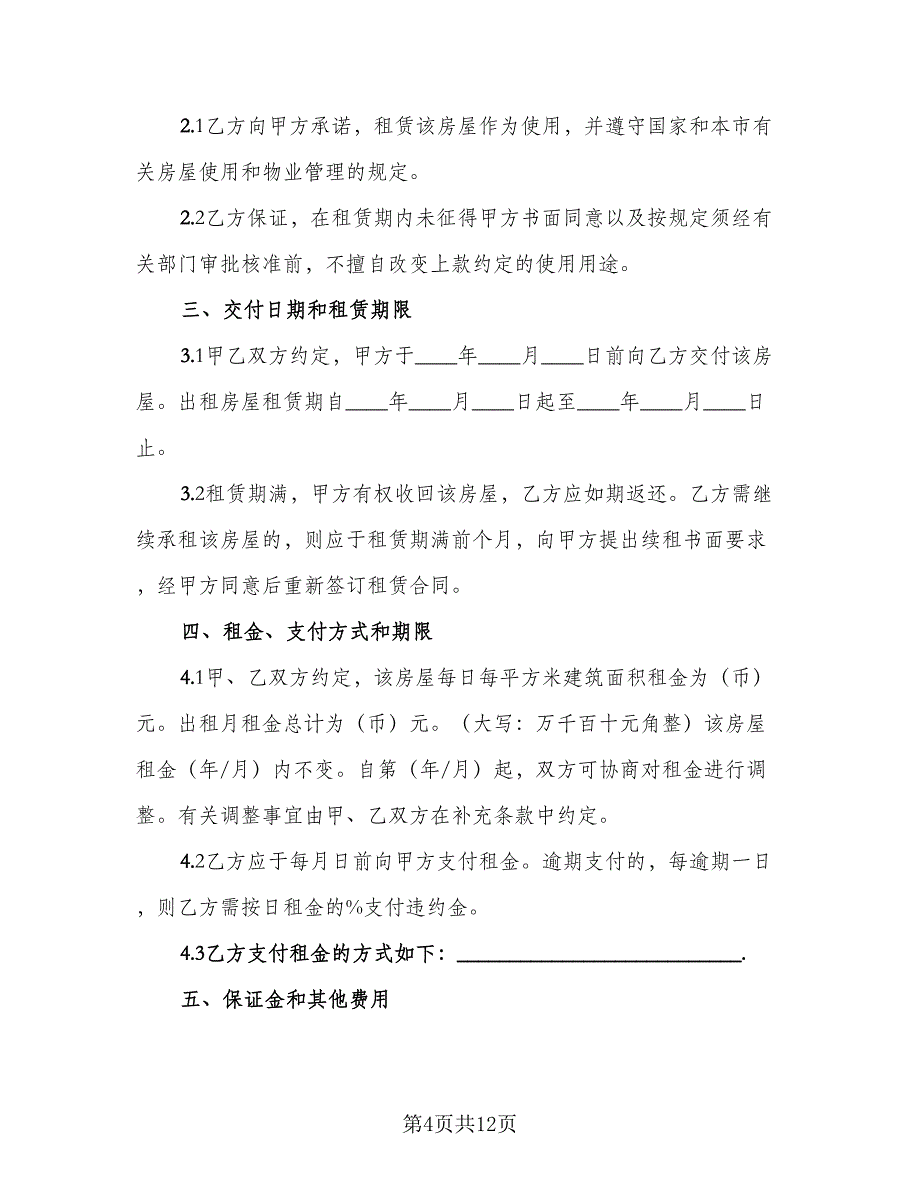 2.1乙方向甲方承诺，租赁该房屋作为使用，并遵守国家和本市有
关房屋使用和物业管理的规定。
2.2乙方保证，在租赁期内未征得甲方书面同意以及按规定须经有
关部门审批核准前，不擅自改变上款约定的使用用途。
三、交付日期和租赁期限
3.1甲乙双方约定，甲方于____年____月____日前向乙方交付该房
屋。出租房屋租赁期自____年____月____日起至____年____月____日
止。
3.2租赁期满，甲方有权收回该房屋，乙方应如期返还。乙方需继
续承租该房屋的，则应于租赁期满前个月，向甲方提出续租书面要求
，经甲方同意后重新签订租赁合同。
四、租金、支付方式和期限
4.1甲、乙双方约定，该房屋每日每平方米建筑面积租金为（币）
元。出租月租金总计为（币）元。（大写：万千百十元角整）该房屋
租金（年/月）内不变。自第（年/月）起，双方可协商对租金进行调
整。有关调整事宜由甲、乙双方在补充条款中约定。
4.2乙方应于每月日前向甲方支付租金。逾期支付的，每逾期一日
，则乙方需按日租金的%支付违约金。
4.3乙方支付租金的方式如下：___________________________.
五、保证金和其他费用
第4页共12页